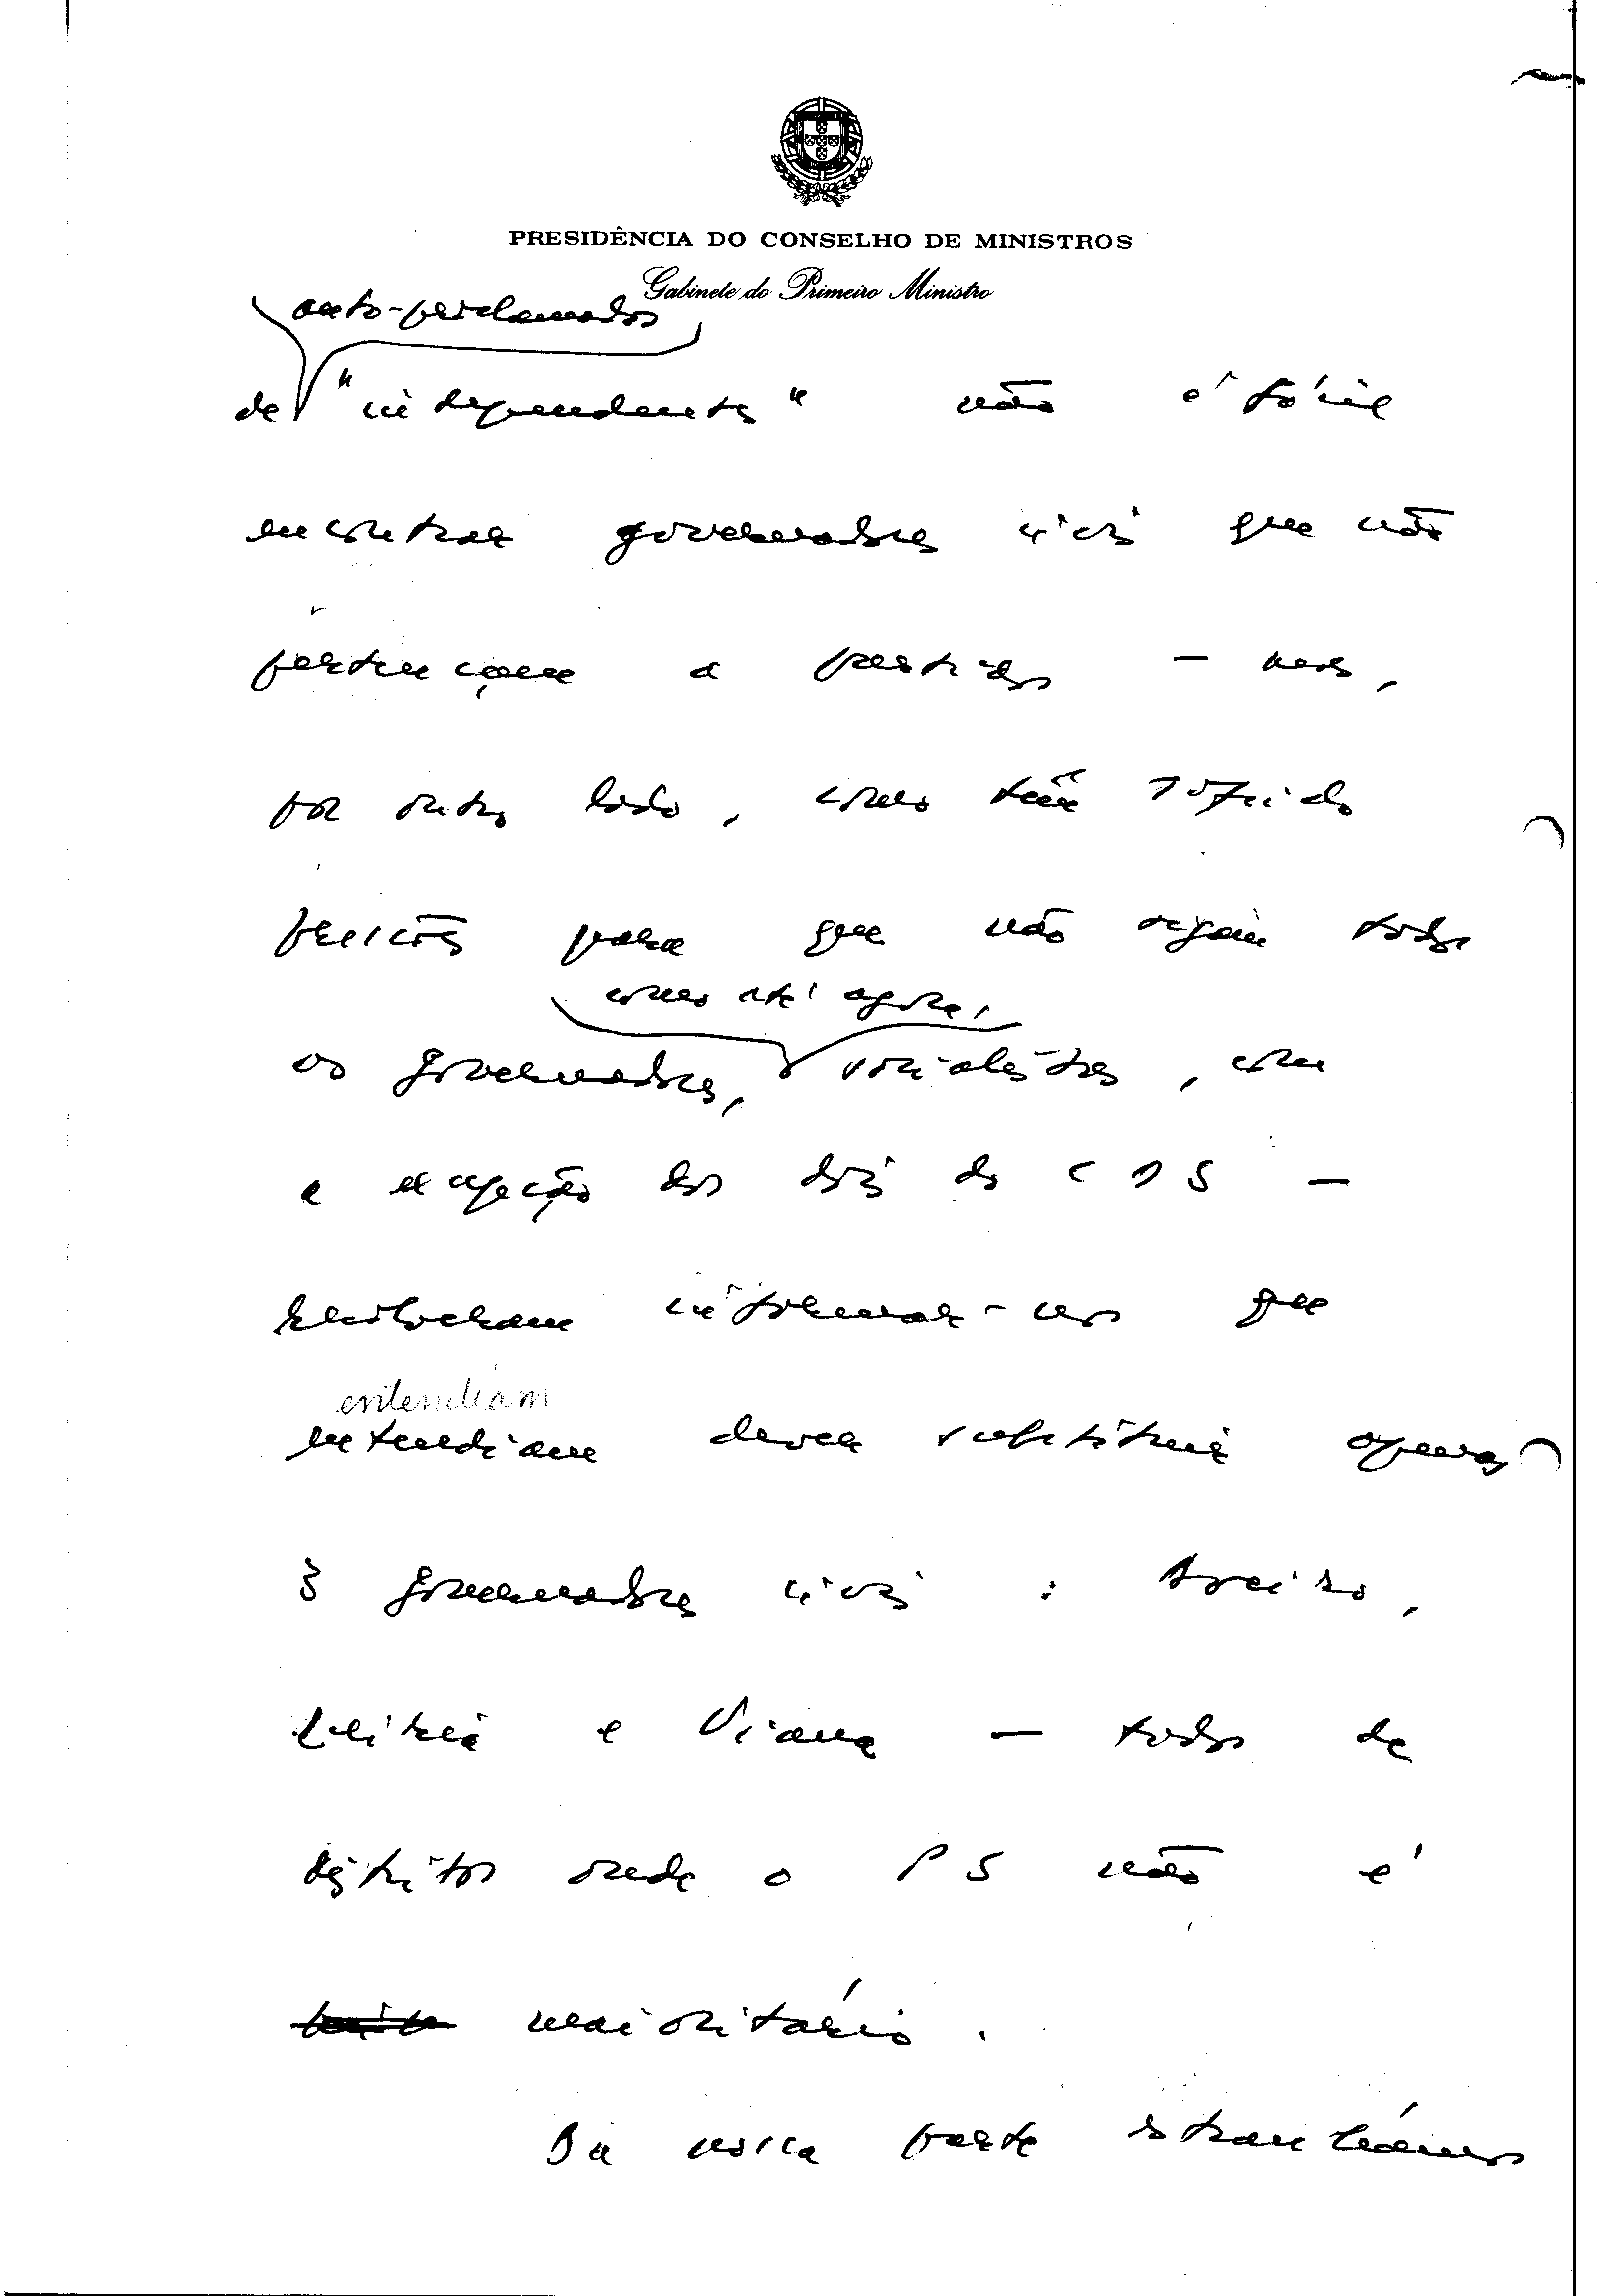 PRESIDÊNCIA DO CONSELHO DE MINISTROS
Gabinete do Primeiro Ministro
auto-proclamados
de "independentes" não é fácil
encontrar governadores civis que não
pertençam a partidos — mas,
por outro lado, como têm sofrido
pressões para que não sejam todos
como até agora,
os governadores, socialistas, com
a excepção dos dois do CDS —
resolveram informar-nos que
entendiam
entendiam dever substituir apenas
3 governadores civis : Aveiro,
Leiria e Viana — todos de
distritos onde o PS não é
maioritário.
Da nossa parte estranhámos